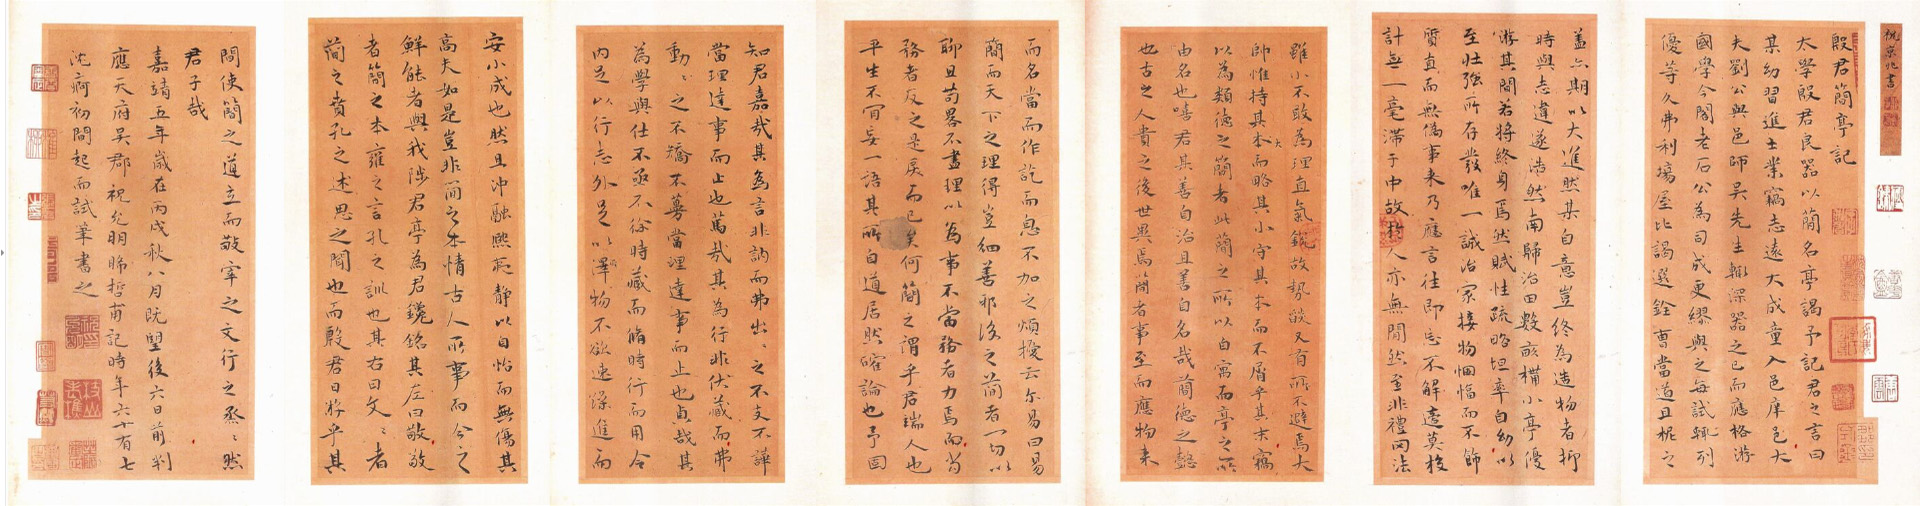 祝京兆書
殷君簡亭記
太學殷君民器以簡名亭謁予記君之言曰
某幼習進士業竊志遠大成童入邑庠邑大
夫劉公與邑師吳先生輒深器之已而應格游
國學今閣老石公為司成更繆與之每試輒列
優等久弗利場屋比謁選銓曹當道且柅之
蓋六期以大進然某自意豈終為造物者抑
時與志違遂浩然南歸治田數畝構小亭優
游其間若將終身焉然賦性疏略坦率自幼以
至壯強所存發唯一誠治家接物悃愊而不飾
質直而無偽事來乃應言往即忘不解邊莫梭
計無一毫滯于中故於人亦無閒然至非禮罔法
雖小不敢為理直氣銳故勢燄又有所不避焉大
帥惟持其本而略其小守其本而不屑乎其末竊
以為類德之簡者此簡之所以自寓而亭之所
由名也嘻君其善自治且善自名哉簡德之懿
也古之人貴之後世異焉簡者事至而應物來
而名當而作訖而息不加之煩擾云尔易曰易
簡而天下之理得豈細善邪後之簡者一切以
聊且苟畧不盡理以為事不當務者力焉而當
務者反之是戾而已矣何簡之謂乎君端人也
平生不肎妄一語其所自道居然確論也予固
知君嘉哉其為言非訥而弗出之不支不譁
當理達事而止也篤哉其為行非伏藏而弗
動之不矯不蔓當理達事而止也貞哉其
為學與仕不亟不徐時藏而脩時行而用合
內足以行志外足以澤物不欲速躁進而
安小成也然且沖融熙菀靜以自怡而無傷其
高夫如是豈非簡之本情古人所事而今之
鮮能者與我陟君亭為君鑱銘其左曰敬敬
者簡之本雍之言孔之訓也其右曰文文者
簡之賁孔之述思之聞也而殷君日游乎其
間使簡之道立而敬宰之文行之烝烝然
君子哉
嘉靖五年歲在丙戌秋八月既朢後六日前判
應天府吳郡祝允明晞哲甫記時年六十有七
沈痾初間起而試筆書之